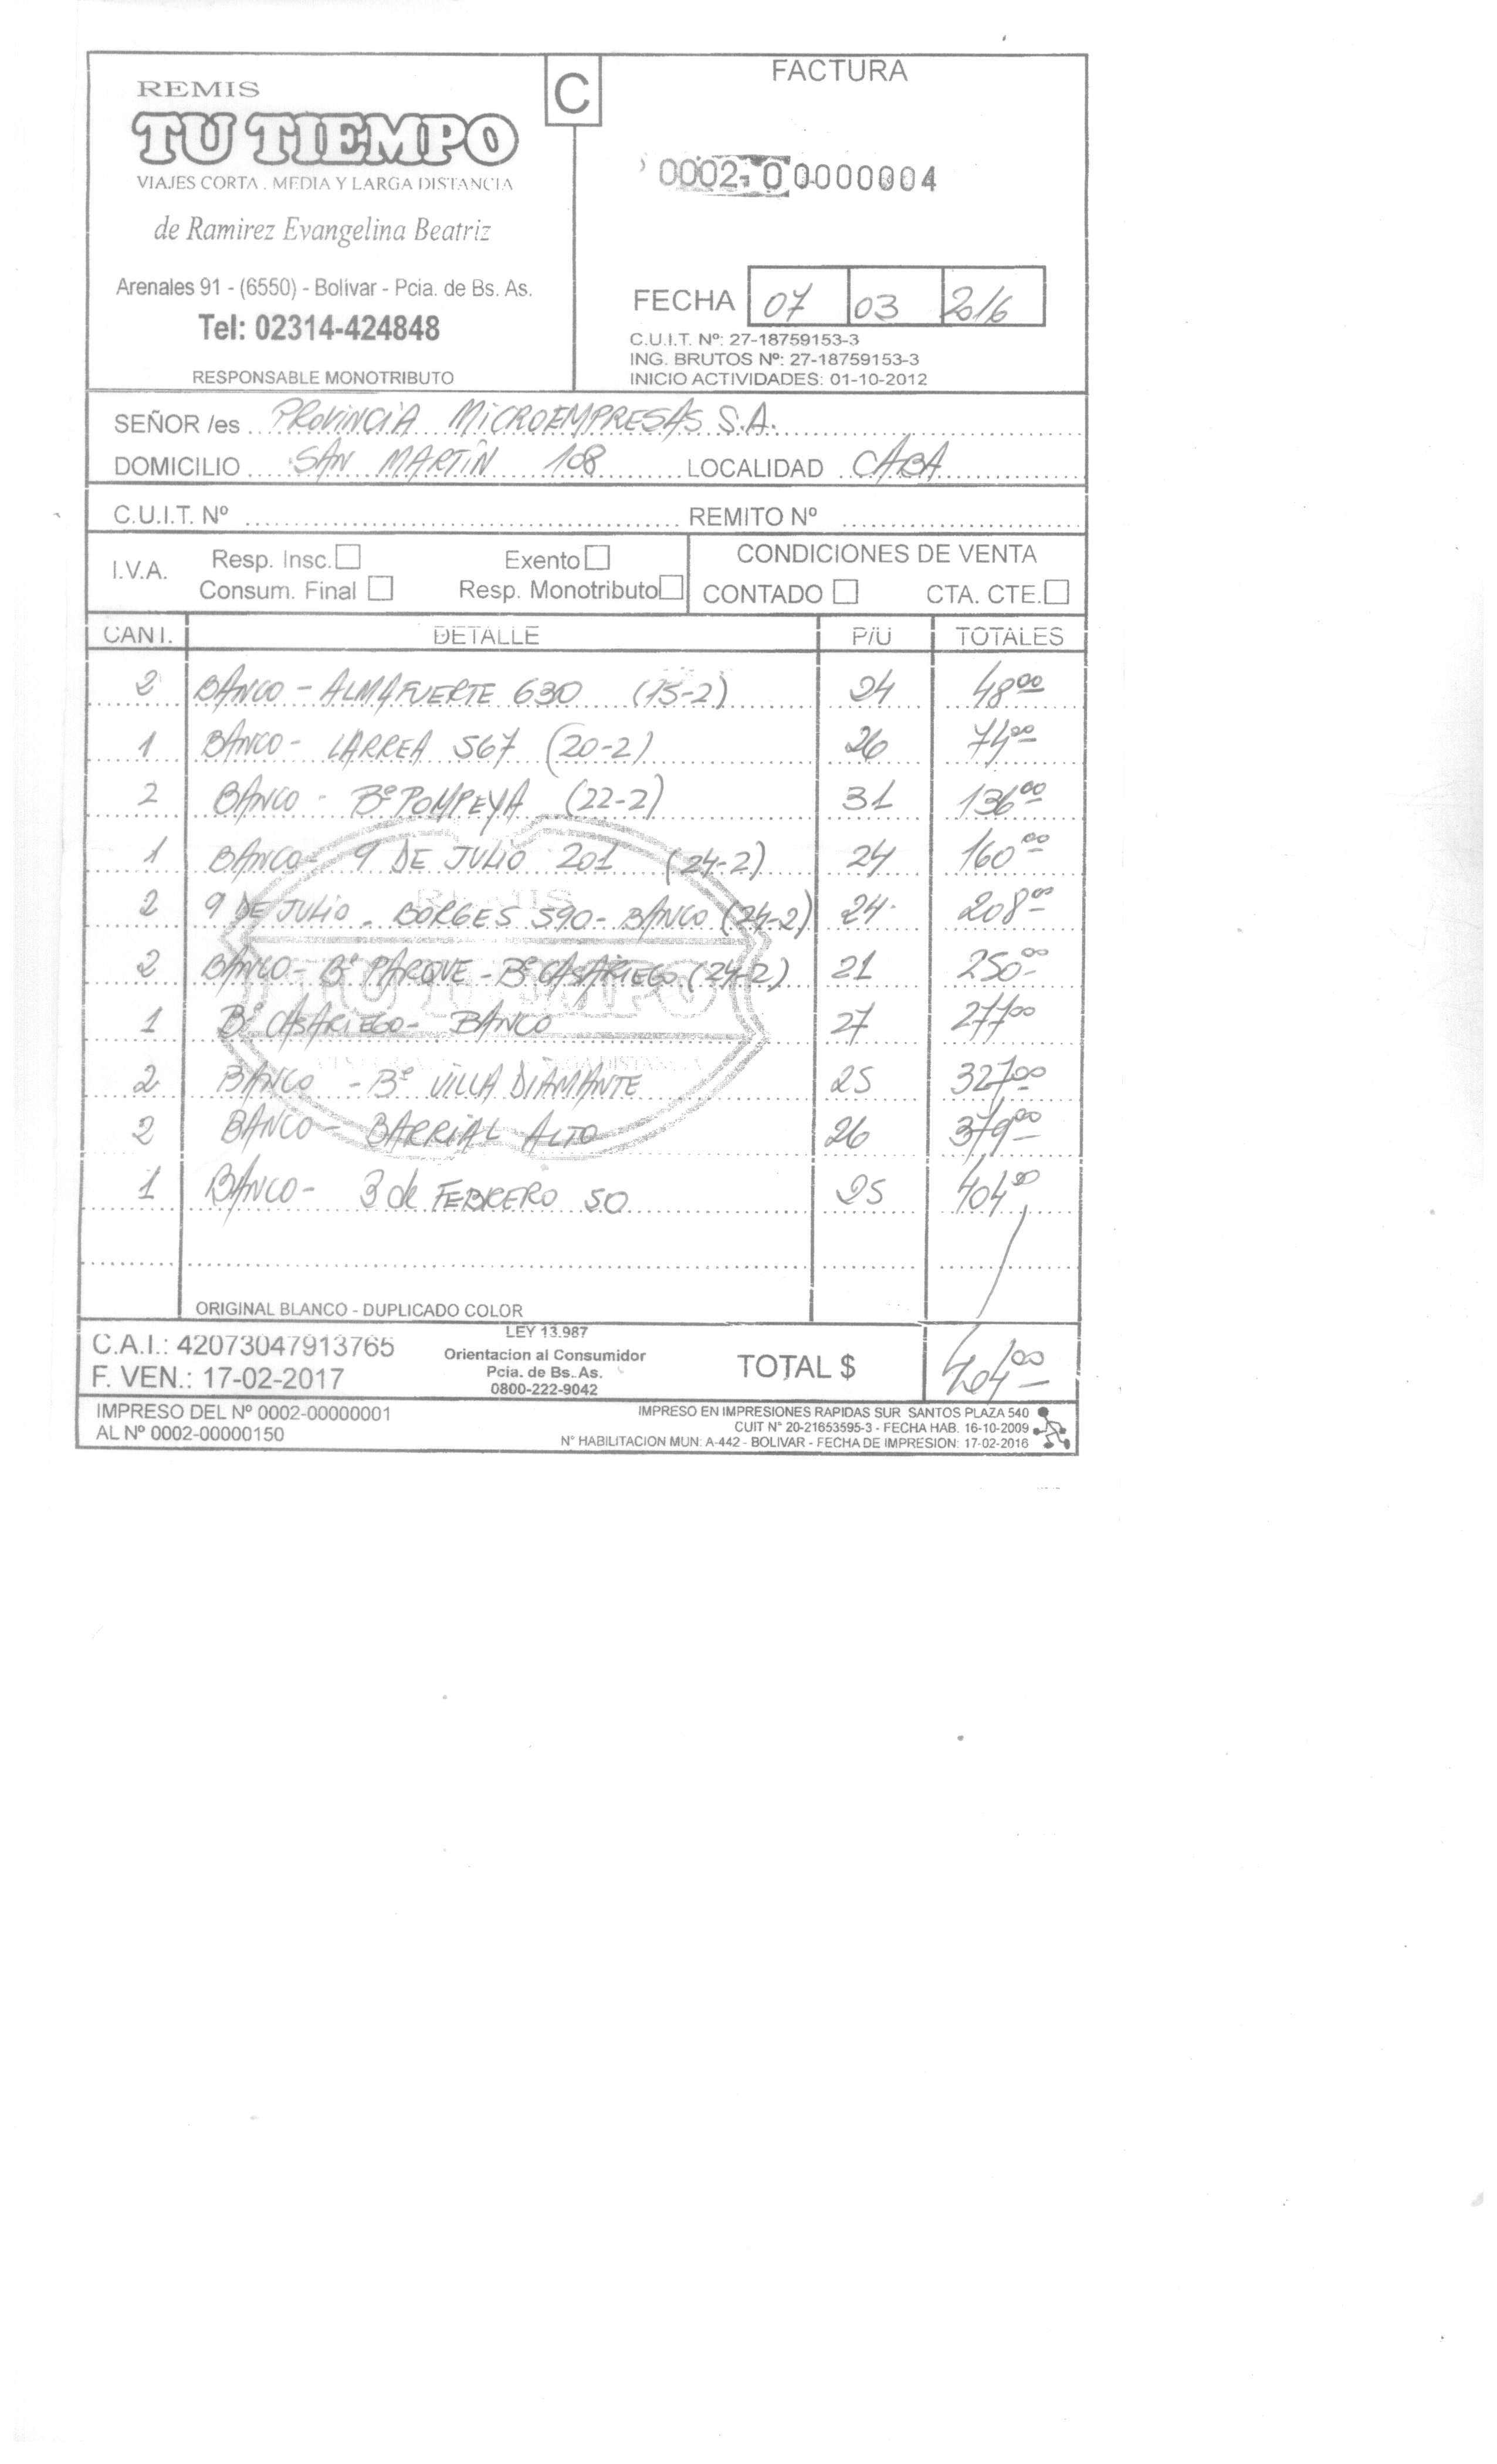 REMIS
TU TIEMPO
VIAJES CORTA . MEDIA Y LARGA DISTANCIA
de Ramirez Evangelina Beatriz
Arenales 91 - (6550) - Bolivar - Pcia. de Bs. As.
Tel: 02314-424848
RESPONSABLE MONOTRIBUTO
C
FACTURA
0002-00000004
FECHA 07 03 2016
C.U.I.T. Nº: 27-18759153-3
ING. BRUTOS Nº: 27-18759153-3
INICIO ACTIVIDADES: 01-10-2012
SEÑOR /es PROVINCIA MICROEMPRESAS S.A.
DOMICILIO SAN MARTIN 108 LOCALIDAD CABA
C.U.I.T. Nº REMITO Nº
I.V.A. Resp. Insc. Exento
Consum. Final Resp. Monotributo
CONDICIONES DE VENTA
CONTADO CTA. CTE.
CANT. DETALLE P/U TOTALES
2 BANCO - ALMAFUERTE 630 (15-2) 24 4800
1 BANCO - LARREA 567 (20-2) 26 7400
2 BANCO - Bº POMPEYA (22-2) 31 13600
1 BANCO - 9 DE JULIO 201 (24-2) 24 16000
2 9 DE JULIO - BORGES 590 - BANCO (24-2) 24 20800
2 BANCO - Bº PARQUE - Bº CASARIEGO (24-2) 21 25000
1 Bº CASARIEGO - BANCO 27 27700
2 BANCO - Bº VILLA DIAMANTE 25 32700
2 BANCO - BARRIAL ALTO 26 37900
1 BANCO - 3 de FEBRERO 50 25 40400
ORIGINAL BLANCO - DUPLICADO COLOR
C.A.I.: 42073047913765
F. VEN.: 17-02-2017
LEY 13.987
Orientacion al Consumidor
Pcia. de Bs. As.
0800-222-9042
TOTAL $ 40400
IMPRESO DEL Nº 0002-00000001
AL Nº 0002-00000150
IMPRESO EN IMPRESIONES RAPIDAS SUR SANTOS PLAZA 540
CUIT N° 20-21653595-3 - FECHA HAB. 16-10-2009
N° HABILITACION MUN: A-442 - BOLIVAR - FECHA DE IMPRESION: 17-02-2016